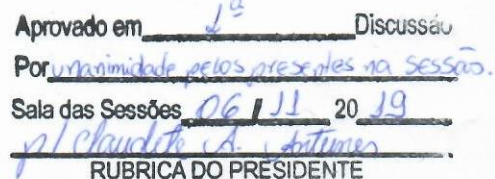 Aprovado em 1ª Discussão
Por unanimidade pelos presentes na sessão.
Sala das Sessões 06 / 11 20 19
p/ Claudete A. Antunes
RUBRICA DO PRESIDENTE